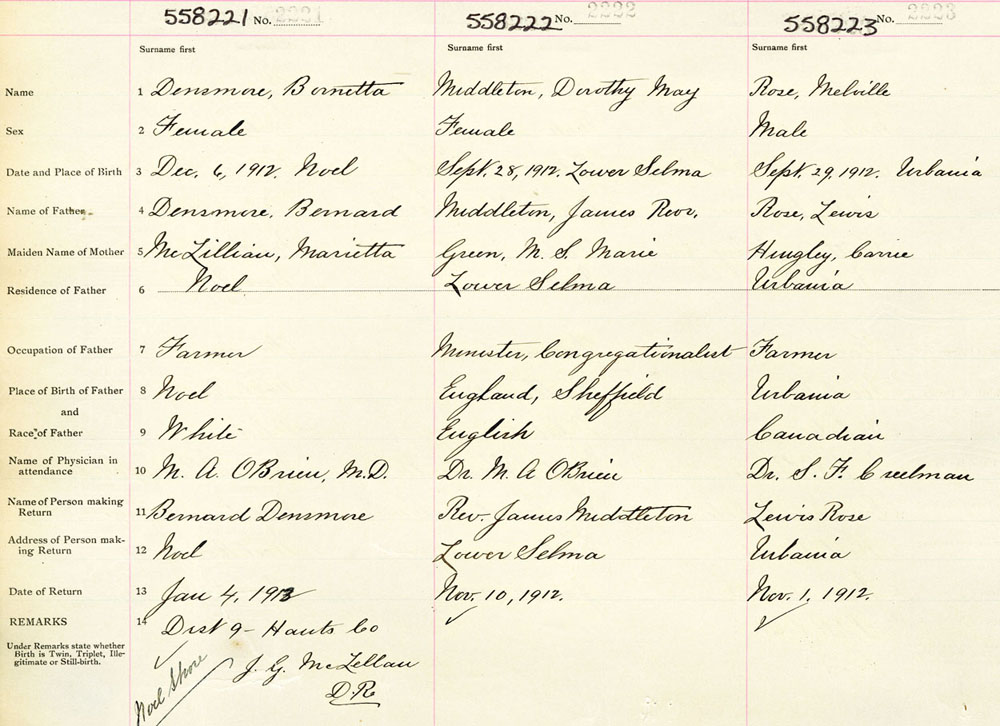 558221 No. 2221 558222 No. 2222 558223 No. 2223
Surname first Surname first Surname first
Name 1 Densmore, Bornetta Middleton, Dorothy May Rose, Melville
Sex 2 Female Female Male
Date and Place of Birth 3 Dec. 6, 1912. Noel Sept. 28, 1912. Lower Selma Sept. 29, 1912. Urbania
Name of Father 4 Densmore, Bernard Middleton, James Rev. Rose, Lewis
Maiden Name of Mother 5 McLillian, Marietta Green, M. S. Marie Hingley, Carrie
Residence of Father 6 Noel Lower Selma Urbania
Occupation of Father 7 Farmer Minister, Congregationalist Farmer
Place of Birth of Father 8 Noel England, Sheffield Urbania
and
Race of Father 9 White English Canadian
Name of Physician in
attendance 10 M. A. OBrien, M.D. Dr. M. A OBrien Dr. S. F. Creelman
Name of Person making
Return 11 Bernard Densmore Rev. James Middleton Lewis Rose
Address of Person mak-
ing Return 12 Noel Lower Selma Urbania
Date of Return 13 Jan 4, 1913 Nov. 10, 1912. Nov. 1, 1912.
REMARKS 14 Dist 9 - Hants Co
Under Remarks state whether
Birth is Twin, Triplet, Ille-
gitimate or Still-birth.
Noel Shore
J. G. McLellan
D.R.